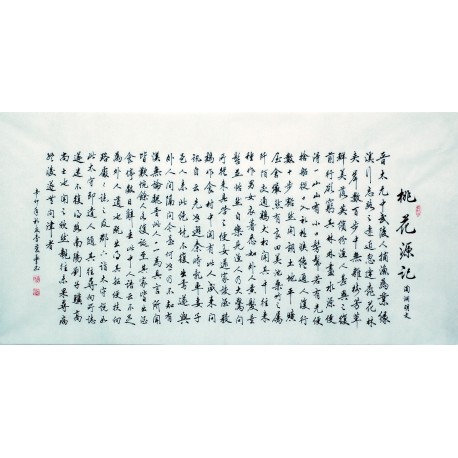 桃花源記
陶淵明文
晉太元中武陵人捕漁為業緣
溪行忘路之遠近忽逢桃花林
夾岸數百步中無雜樹芳草
鮮美落英繽紛漁人甚異之復
前行欲窮其林林盡水源便
得一山山有小口髣髴若有光便
捨船從口入初極狹纔通人復行
數十步豁然開朗土地平曠
屋舍儼然有良田美池桑竹之屬
阡陌交通雞犬相聞其中往來
種作男女衣著悉如外人黃髮垂
髫並怡然自樂見漁人乃大驚問
所從來具答之便要還家設酒殺
雞作食村中聞有此人咸來問
訊自云先世避秦時亂率妻子
邑人來此絕境不復出焉遂與
外人間隔問今是何世乃不知有
漢無論魏晉此人一一為具言所聞
皆歎惋餘人各復延至其家皆出酒
食停數日辭去此中人語云不足
為外人道也既出得其船便扶向
路處處誌之及郡下詣太守說如
此太守即遣人隨其往尋向所誌
遂迷不復得路南陽劉子驥高
尚士也聞之欣然親往未果尋病
終後遂無問津者
辛卯年秋